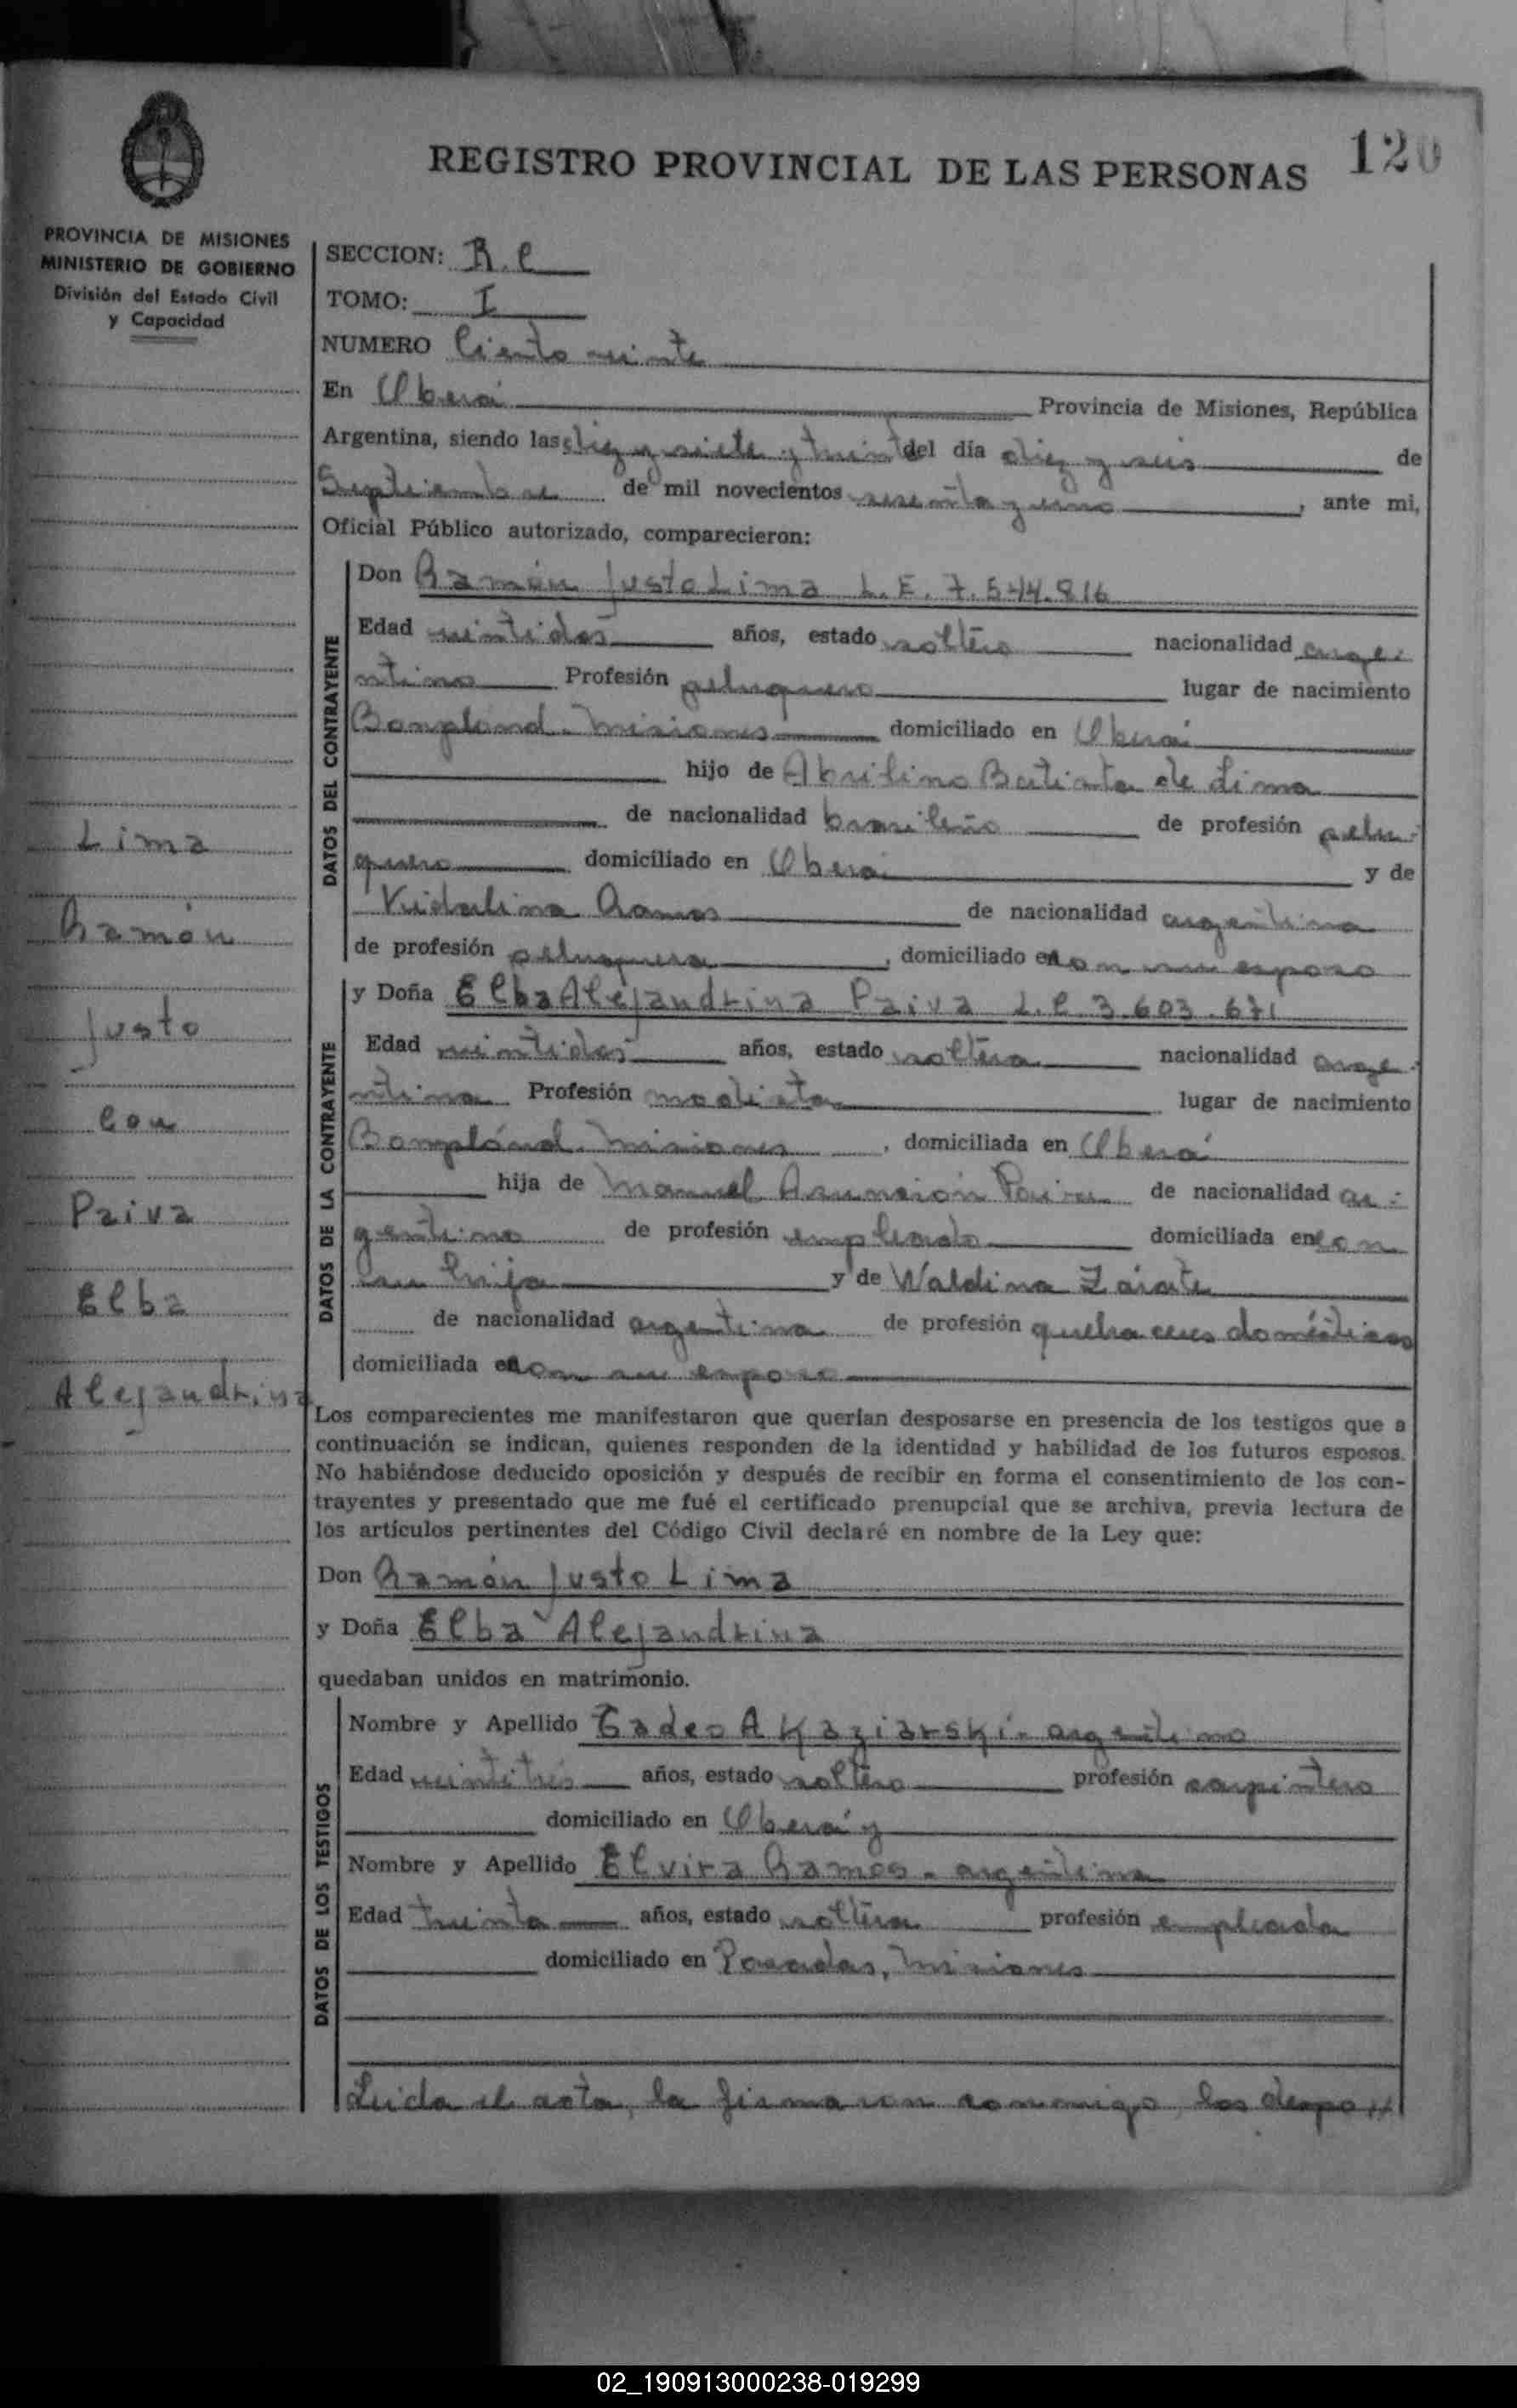 REGISTRO PROVINCIAL DE LAS PERSONAS 120
PROVINCIA DE MISIONES
MINISTERIO DE GOBIERNO
División del Estado Civil
y Capacidad
SECCION: R.C
TOMO: I
NUMERO Ciento veinte
En Oberá Provincia de Misiones, República
Argentina, siendo las diez y siete y treint del día diez y seis de
Septiembre de mil novecientos sesenta y uno, ante mi,
Oficial Público autorizado, comparecieron:
DATOS DEL CONTRAYENTE
Don Ramón Justo Lima L.E. 7.544.816
Edad veintidos años, estado soltero nacionalidad arge-
ntino Profesión peluquero lugar de nacimiento
Bonpland-Misiones domiciliado en Oberá
hijo de Abrilino Batista de Lima
de nacionalidad brasileño de profesión pelu-
quero domiciliado en Oberá y de
Vidalina Ramos de nacionalidad argentina
de profesión peluquera, domiciliado en con su esposo
DATOS DE LA CONTRAYENTE
y Doña Elba Alejandrina Paiva L.C. 3.603.671
Edad veintidos años, estado soltera nacionalidad arge-
ntina Profesión modista lugar de nacimiento
Bonpland-Misiones, domiciliada en Oberá
hija de Manuel Asunción Paiva de nacionalidad ar-
gentino de profesión empleado domiciliada en con
su hija y de Waldina Zárate
de nacionalidad argentina de profesión quehaceres domésticos
domiciliada en con su esposo
Los comparecientes me manifestaron que querían desposarse en presencia de los testigos que a
continuación se indican, quienes responden de la identidad y habilidad de los futuros esposos.
No habiéndose deducido oposición y después de recibir en forma el consentimiento de los con-
trayentes y presentado que me fué el certificado prenupcial que se archiva, previa lectura de
los artículos pertinentes del Código Civil declaré en nombre de la Ley que:
Don Ramón Justo Lima
y Doña Elba Alejandrina
quedaban unidos en matrimonio.
DATOS DE LOS TESTIGOS
Nombre y Apellido Tadeo A Kaziarski- argentino
Edad veintitrés años, estado soltero profesión carpintero
domiciliado en Oberá y
Nombre y Apellido Elvira Ramos - argentina
Edad treinta años, estado soltera profesión empleada
domiciliado en Posadas, Misiones
Leida el acta, la firmaron conmigo, los despo//
Lima
Ramón
Justo
Con
Paiva
Elba
Alejandrina
02_190913000238-019299